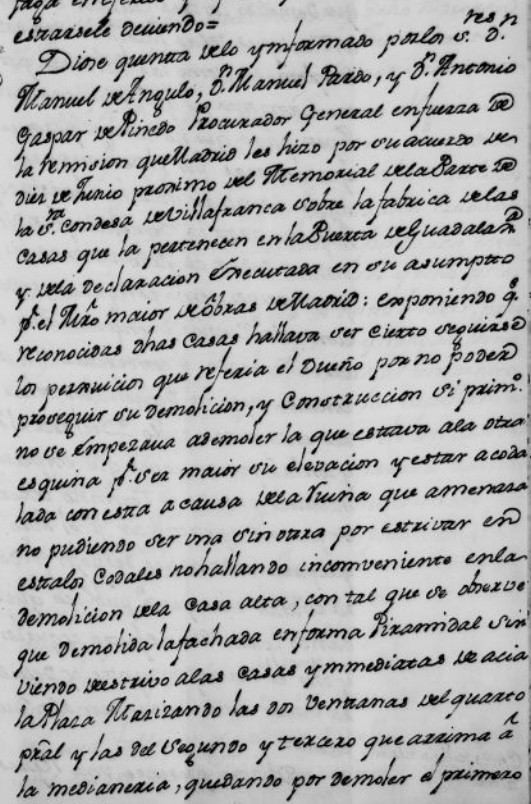 estarsele deviendo=
Diose quenta delo ynformado por los s.res D.n
Manuel de Angulo, D.n Manuel Pardo, y D.n Antonio
Gaspar de Pinedo Procurador General en fuerza de
la remision que Madrid les hizo por su acuerdo de
diez de Junio proximo del Memorial dela Parte de
la s.ra Condesa de Villafranca sobre la fabrica delas
casas que la pertenecen en la Puerta de Guadalax.a
y dela declaracion Executada en su asumpto
p.r el Mro maior de obras de Madrid: exponiendo q.e
reconocidas dhas Casas hallava ser cierto seguirse
los perxuicios que referia el Dueño por no poder
proseguir su demolicion, y Construccion si prim.o
no se empezava a demoler la que estava ala otra
esquina p.r ser maior su elevacion y estar acoda
lada con esta a causa dela ruina que amenaza
no pudiendo ser una sin otra por estrivar en
esta los Codales no hallando incomveniente en la
demolicion dela Casa alta, con tal que se observe
que demolida la fachada en forma Piramidal sir
viendo de estrivo alas Casas ymmediatas de acia
la Plaza Mazizando las dos Ventanas del quarto
pral y las del segundo y tercero que arrima a
la medianeria, quedando por demoler el primero